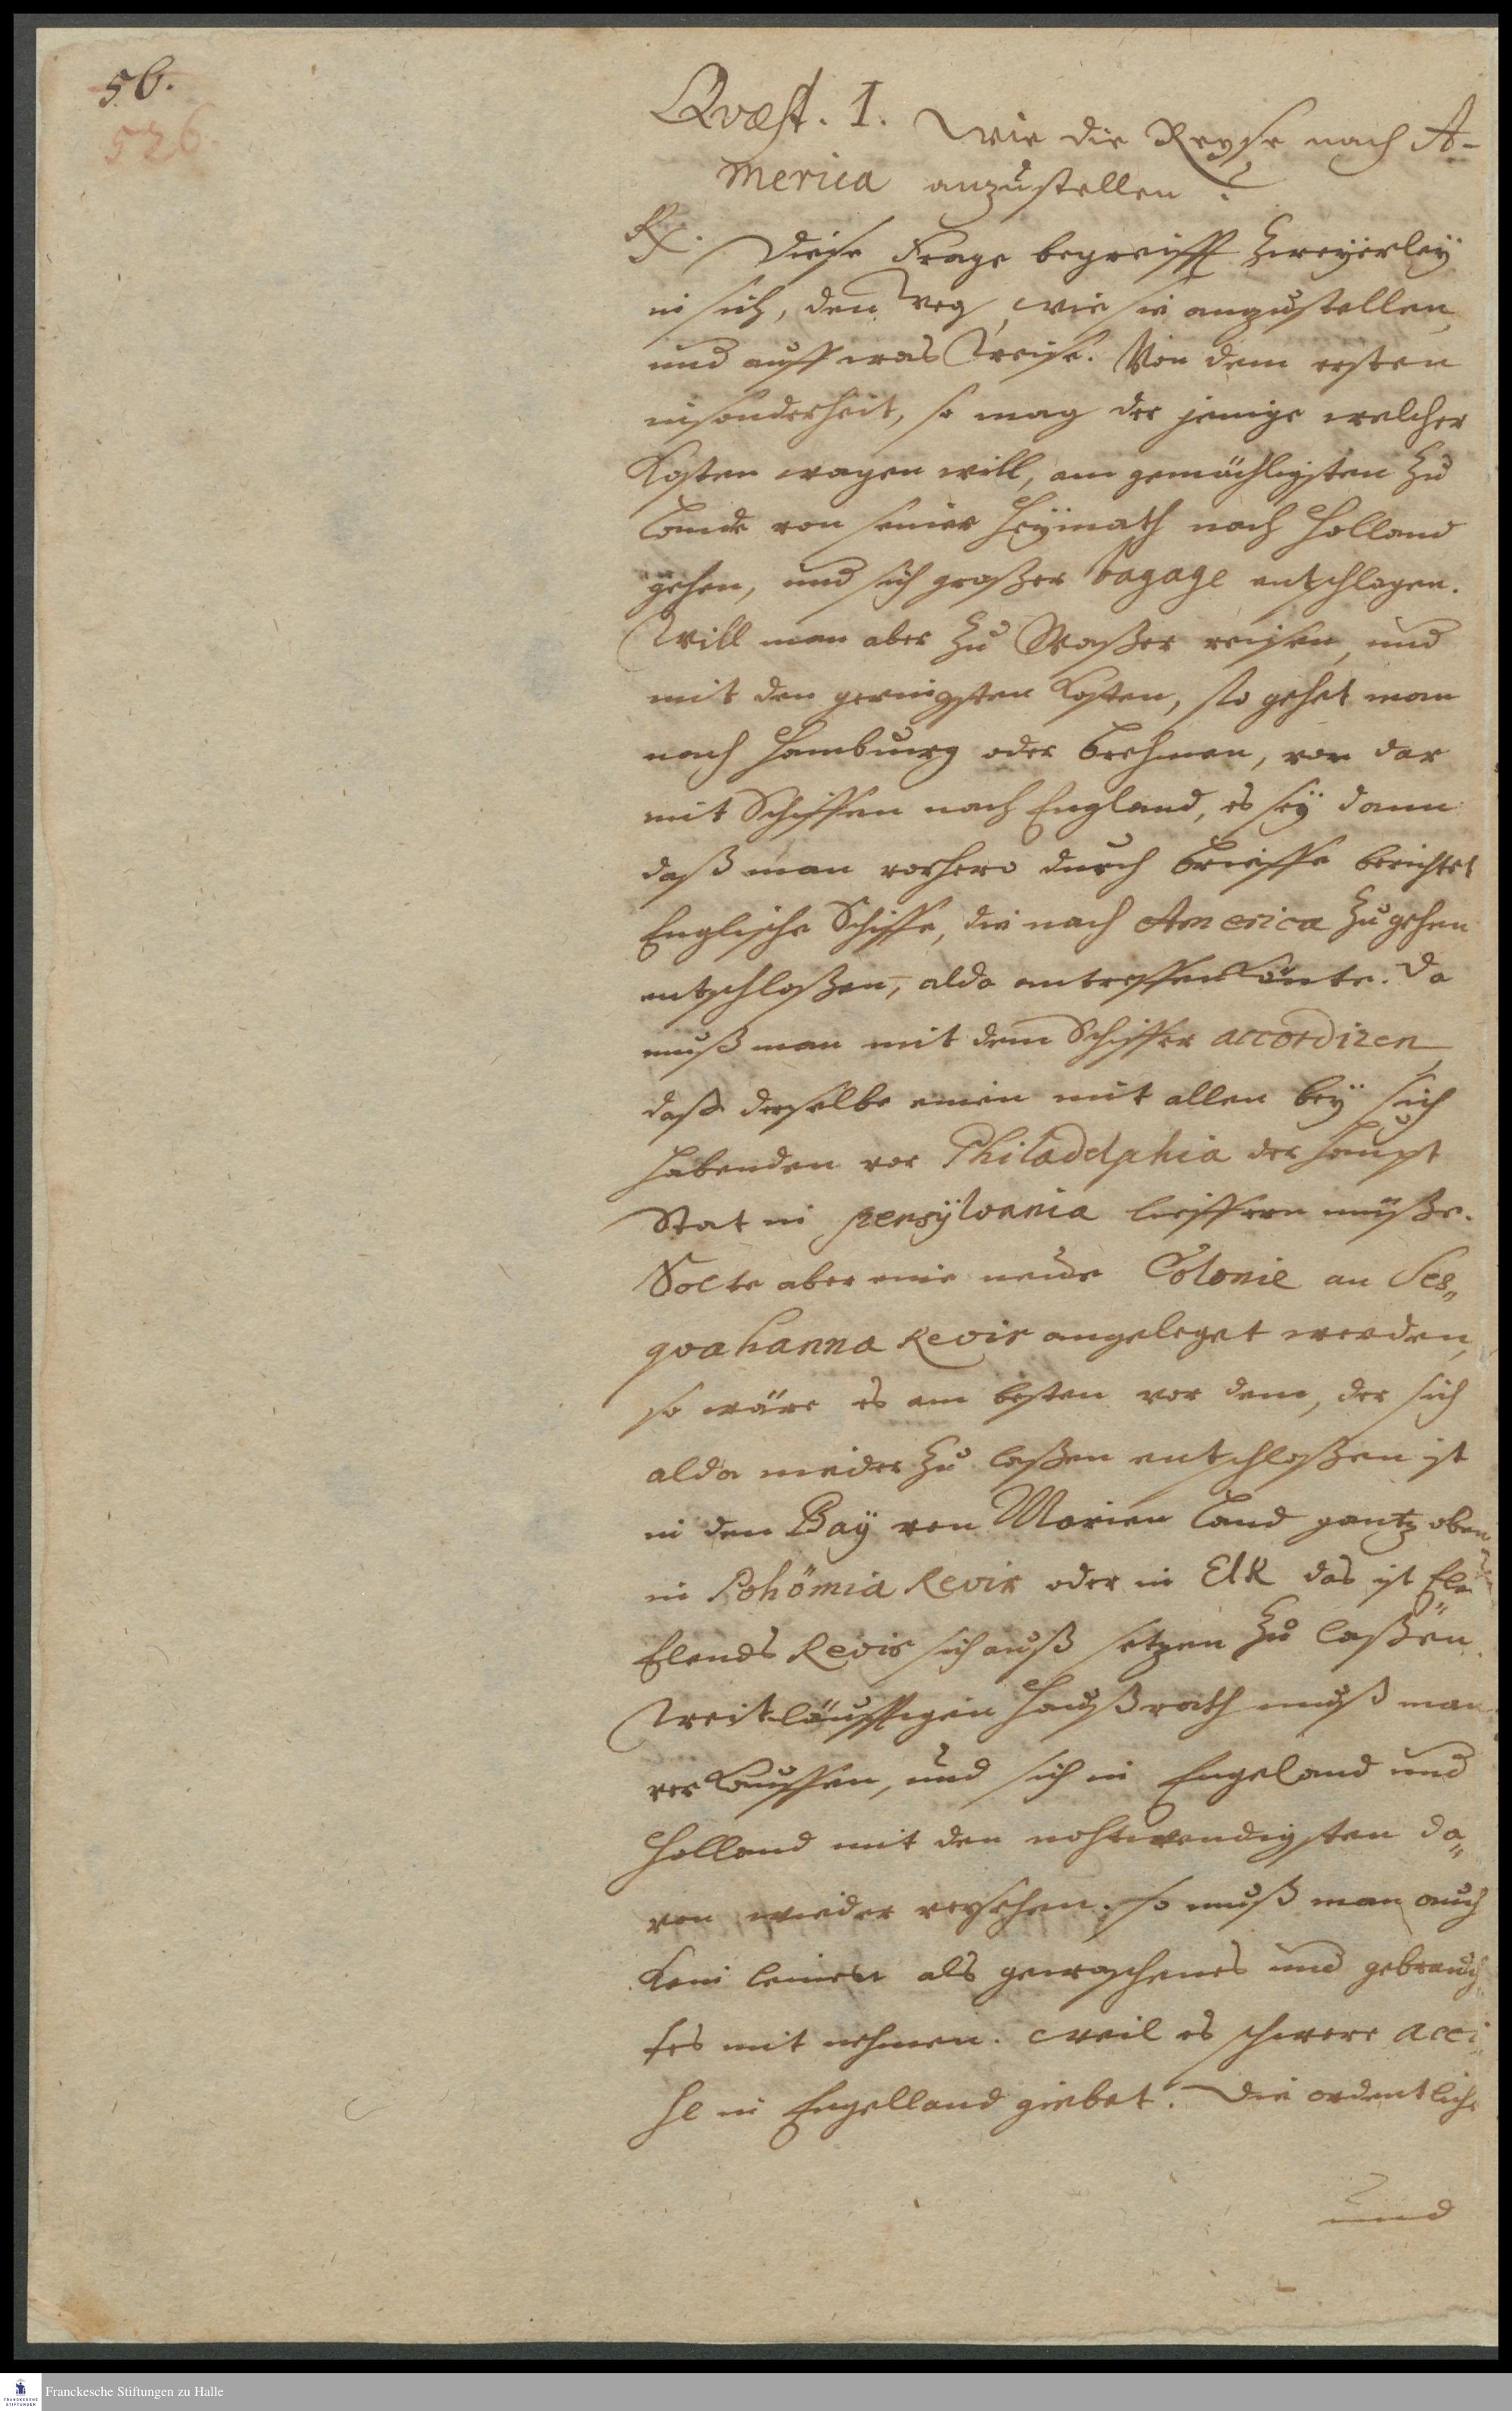 56.
526.
Qvæst. 1. Wie die Reyse nach A-
merica anzustellen?
Rx. Diese Frage begreifft zweyerleÿ
in sich, den Weg, wie sie anzustellen,
und auff was Weise. Von dem ersten
insonderheit, so mag der jenige welcher
Kosten wagen will, am gemächligsten zu
Lande von seiner Heÿmath nach Holland
gehen, und sich großer bagage entschlagen.
Will man aber zu Waßer reisen, und
mit den geringsten Kosten, so gehet man
nach Hamburg oder Brehmen, von dar
mit Schiffen nach England, es seÿ dann
daß man vorhero durch Brieffe berichtet
Englische Schiffe, die nach America zu gehen
entschloßen, alda antreffen könte. Da
muß man mit dem Schiffer accordiren,
daß derselbe einen mit allen beÿ sich
habenden vor Philadelphia der Haupt
Stat in pensÿlvania lieffern müße.
Solte aber eine neue Colonie an Ses„
qvahanna Revir angeleget werden,
so wäre es am besten vor dem, der sich
alda nieder zu laßen entschloßen ist
in den Baÿ von Marien Land gantz oben
in Bohömia Revir oder in Elk das ist
Elends Revir sich auß setzen zu laßen.
Weitläufftigen Haußrath muß man
verkauffen, und sich in Engeland und
Holland mit den nohtwendigsten da„
von wieder versehen. so muß man auch
kein leinen als gewaschenes und gebrauch„
tes mit nehmen. weil es schwere acci„
se in Engelland giebet. Die ordentliche
und
Franckesche Stiftungen zu Halle
FRANCKESCHE
STIFTUNGEN